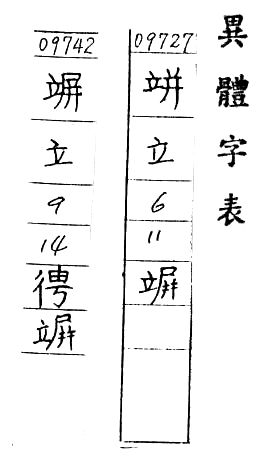 異體字表
09727
立
6
11
竮
09742
竮
立
9
14
竮